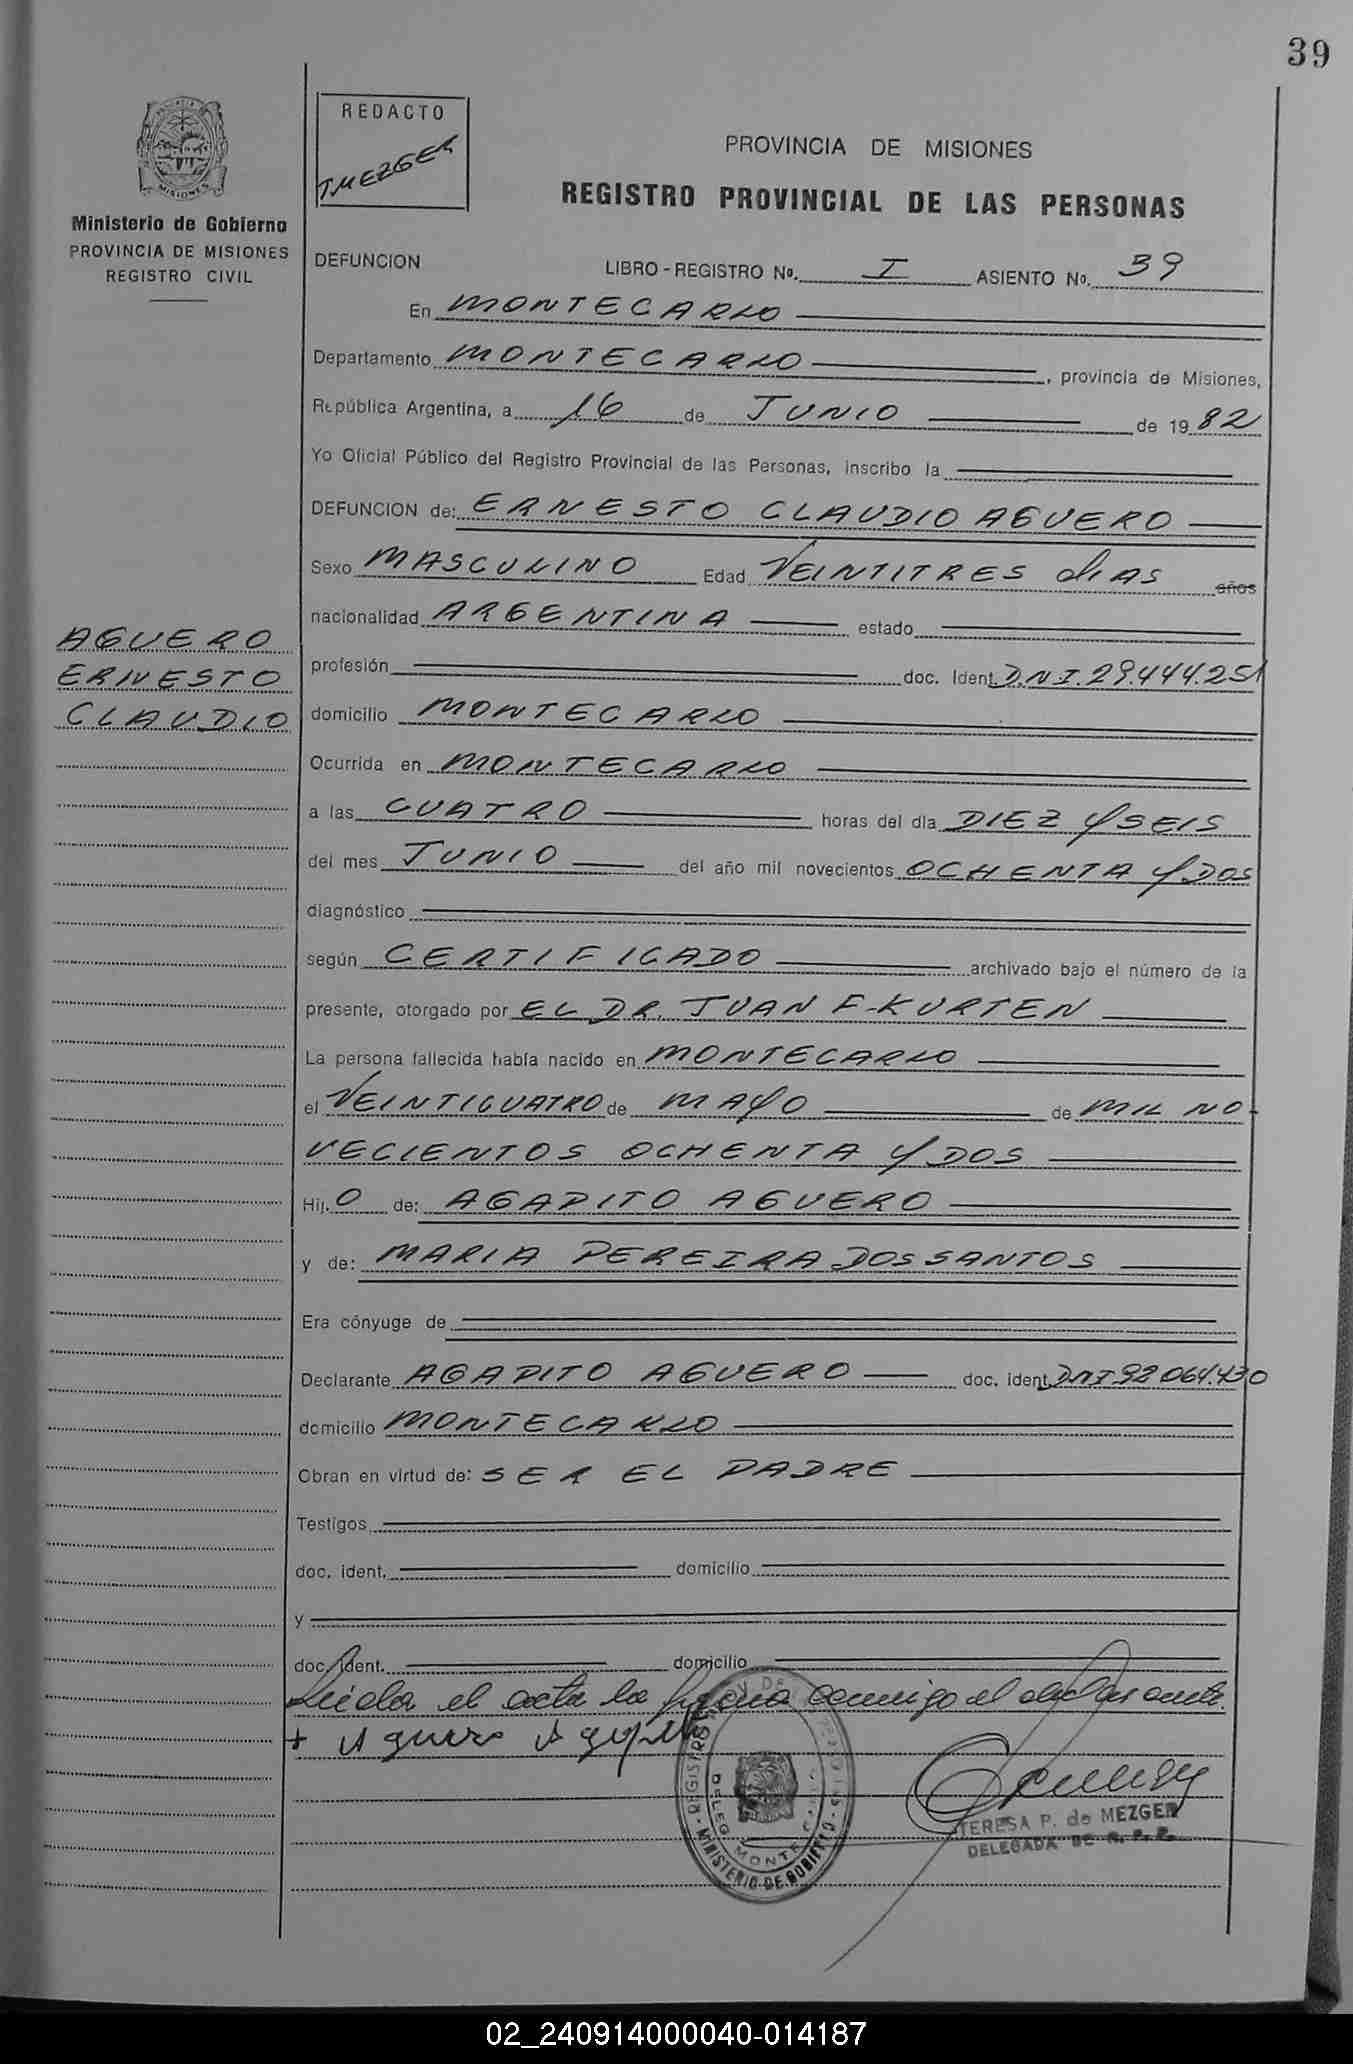 39
REDACTO
T. MEZGER
MISIONES
Ministerio de Gobierno
PROVINCIA DE MISIONES
REGISTRO CIVIL
PROVINCIA DE MISIONES
REGISTRO PROVINCIAL DE LAS PERSONAS
DEFUNCION LIBRO - REGISTRO Nº. I ASIENTO Nº. 39
En MONTECARLO
Departamento MONTECARLO, provincia de Misiones,
República Argentina, a 16 de JUNIO de 1982
Yo Oficial Público del Registro Provincial de las Personas, inscribo la
DEFUNCION de: ERNESTO CLAUDIO AGUERO
Sexo MASCULINO Edad VEINTITRES dIAS años
nacionalidad ARGENTINA estado
AGUERO
ERNESTO
CLAUDIO
profesión doc. Ident. D.N.I. 29.444.251
domicilio MONTECARLO
Ocurrida en MONTECARLO
a las CUATRO horas del día DIEZ y SEIS
del mes JUNIO del año mil novecientos OCHENTA y DOS
diagnóstico
según CERTIFICADO archivado bajo el número de la
presente, otorgado por EL DR. JUAN F. KURTEN
La persona fallecida había nacido en MONTECARLO
el VEINTICUATRO de MAYO de MIL NO-
VECIENTOS OCHENTA y DOS
Hij. O de: AGAPITO AGUERO
y de: MARIA PEREIRA DOS SANTOS
Era cónyuge de
Declarante AGAPITO AGUERO doc. ident. D.N.I 92.064.430
domicilio MONTECARLO
Obran en virtud de: SER EL PADRE
Testigos
doc. ident. domicilio
y
doc. ident. domicilio
Leida el acta la firma conmigo el declarante.
+ Aguero Agapito
REGISTRO
DELEG. MONTE
MINISTERIO DE GOBIERNO
TERESA P. de MEZGER
DELEGADA DE R. P. P.
02_240914000040-014187